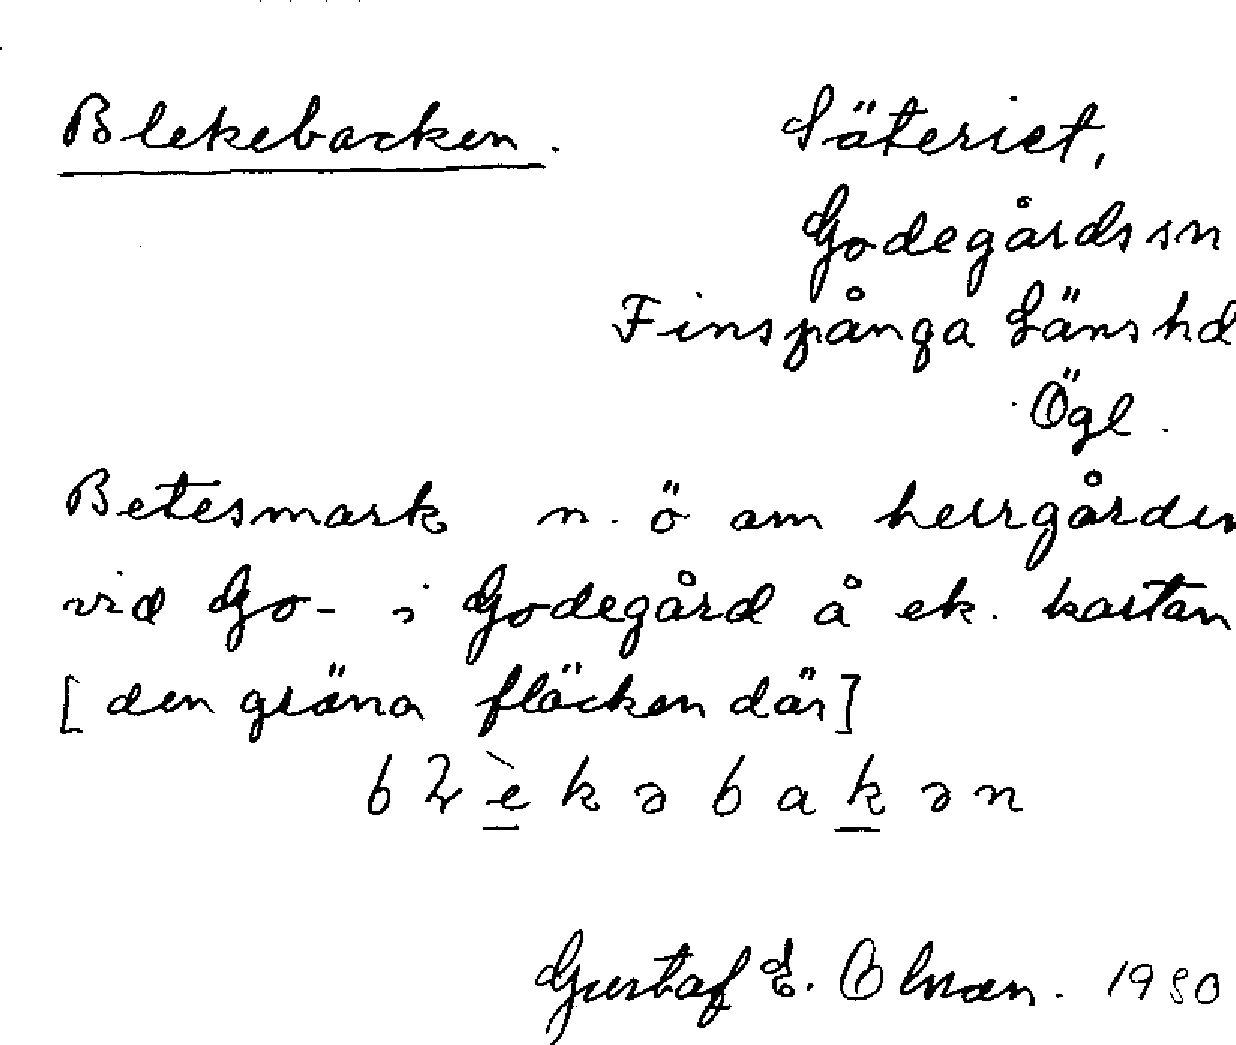 Blekebacken. Säteriet,
Godegårds sn
Finspånga Läns hd
Ögl.
Betesmark n. ö om herrgården
vid Go- i Godegård å ek. kartan
[den gröna fläcken där]
bɫèkəbakən
Gustaf E. Olman. 1930